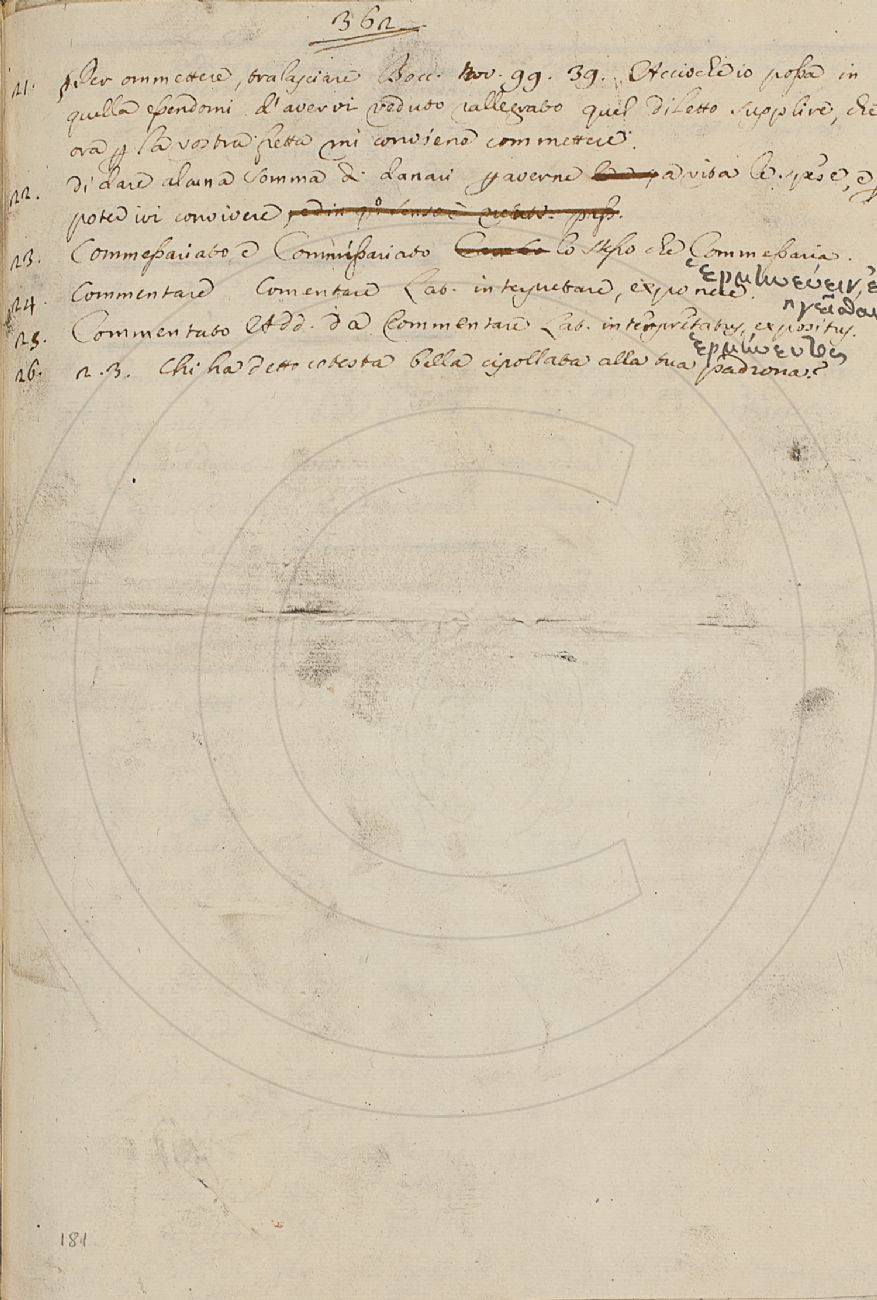 362
21. Per ommettere, tralasciare Bocc. Nov. 99. 39. Acciochè io possa in
quella essendomi d'avervi veduto rallegrato quel diletto supplire, che
ora p la vostra fretta mi conviene commettere.
22. Di dare alcuna somma di danari p averne a vita le spese, e p
poter ivi convivere
23. Commessariato, e Commissariato lo stesso che Commessaria.
24. Commentare Comentare Lat. interpretare, exponere. ἑρμηνεύειν, ἐ
25. Commentato Add. da Commentare Lat. interpretatus, expositus.
26. 2. 3. Chi ha detto cotesta bella cipollata alla tua padrona?
181